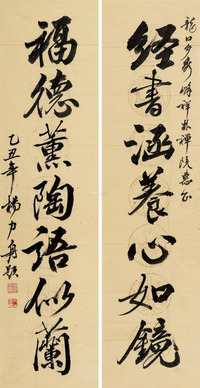 经書涵養心如鏡
福德薰陶語似蘭
乙丑年楊力舟題